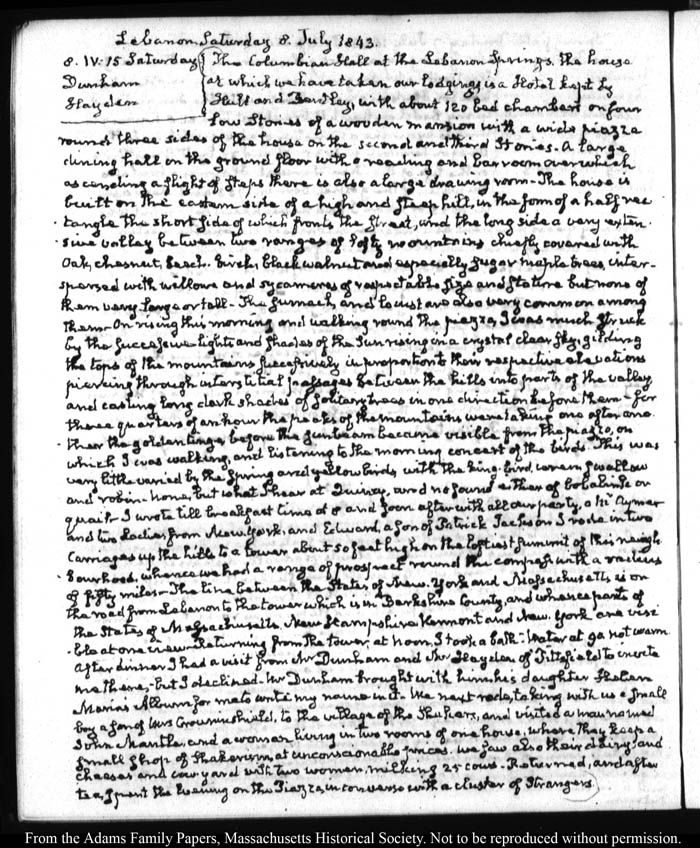 Lebanon, Saturday 8. July 1843.
8. IV:15 Saturday The Columbian Hall at the Lebanon Springs. the house
Dunham at which we have taken our lodgings is a Hotel kept by
Hayden Hull and Bentley, with about 120 bed chambers on four
low Stories of a wooden mansion with a wide piazza
round three sides of the house on the second and third Stories. A large
dining hall on the ground floor with a reading and bar room over which
ascending a flight of steps there is also a large drawing room - The house is
built on the eastern side of a high and steep hill, in the form of a half rec
tangle the short side of which fronts the Street, and the long side a very exten
sive valley between two ranges of lofty mountains chiefly covered with
Oak, chesnut, beech, birch, black walnut and especially sugar maple trees, inter-
spersed with willows and sycamores of respectable size and stature but none of
them very large or tall - The Sumach and locust are also very common among
them - On rising this morning and walking round the piazza, I was much struck
by the successive lights and shades of the Sun rising in a crystal clear sky, gilding
the tops of the mountains successively in proportion to their respective elevations
piercing through interstitial passages between the hills into parts of the valley
and casting long dark shades of solitary trees in one direction before them - For
three quarters of an hour the peaks of the mountains were taking one after ano
ther the golden tinge, before the sunbeam became visible from the piazza, on
which I was walking, and listening to the morning concert of the birds. This was
very little varied by the Spring and yellow birds with the king-bird, wren swallow
and robin - none, but what I hear at Quincy, and no sound either of bobolink or
quail - I wrote till breakfast time at 8 and soon after with all our party, a Mr Aymar
and two Ladies from New York, and Edward, a son of Patrick Jackson I rode in two
Carriages up the hills to a tower about 50 feet high on the loftiest summit of this neigh
bourhood, whence we had a range of prospect round the compass with a radius
of fifty miles - The line between the States of New-York and Massachusetts is on
the road from Lebanon to the tower which is in Berkshire County, and whence parts of
the States of Massachusetts, New Hampshire Vermont and New York are visi
ble at one view - Returning from the tower, at noon, I took a bath - Water at 72 not warm
After dinner I had a visit from Mr Dunham and Mr Hayden of Pittsfield to invite
me there, - but I declined - Mr Dunham brought with him, his daughter Helen
Maria's Album for me to write my name in it. We next rode, taking with us a small
boy a son of Mrs Crowninshield, to the village of the Shakers, and visited a man named
John Mantle, and a woman living in two rooms of one house, where they keep a
small shop of Shakerism, at unconscionable prices. We saw also their dairy and
cheeses and cow yard with two women, milking 25 cows. Returned, and after
tea, spent the Evening on the Piazza, in converse with a cluster of Strangers.
From the Adams Family Papers, Massachusetts Historical Society. Not to be reproduced without permission.